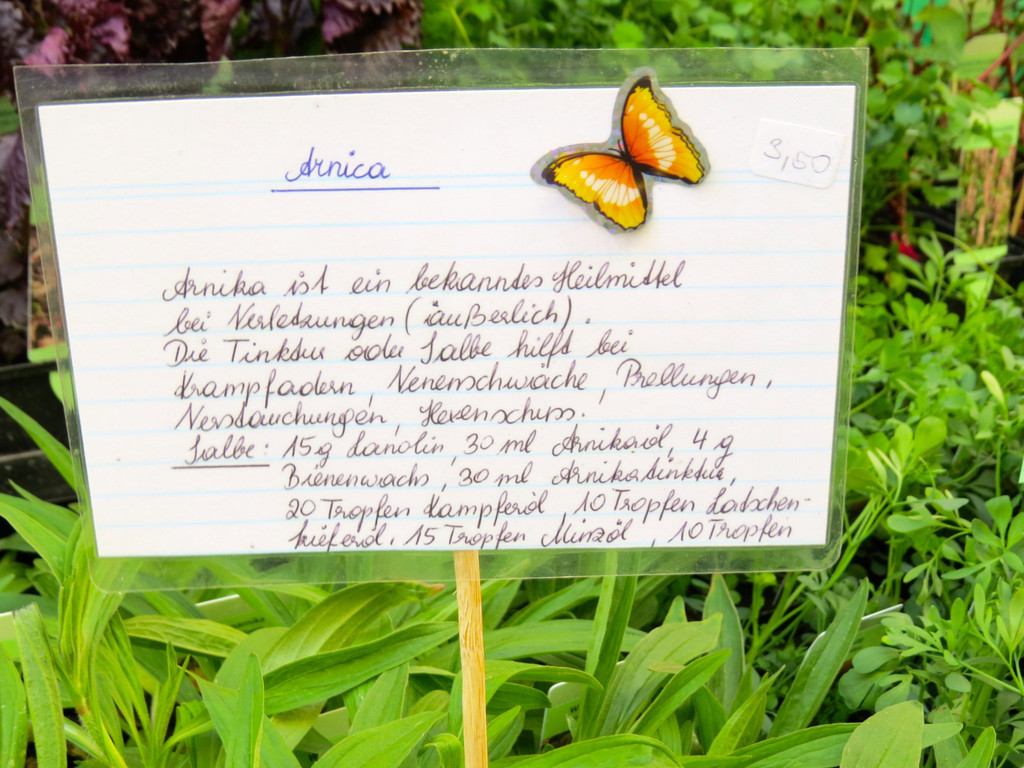 Arnica
3,50
Arnika ist ein bekanntes Heilmittel
bei Verletzungen (äußerlich).
Die Tinktur oder Salbe hilft bei
Krampfadern, Venenschwäche, Prellungen,
Verstauchungen, Hexenschuss.
Salbe: 15g Lanolin, 30 ml Arnikaöl, 4 g
Bienenwachs, 30 ml Arnikatinktur,
20 Tropfen Kampferöl, 10 Tropfen Latschen-
kieferöl, 15 Tropfen Minzöl, 10 Tropfen